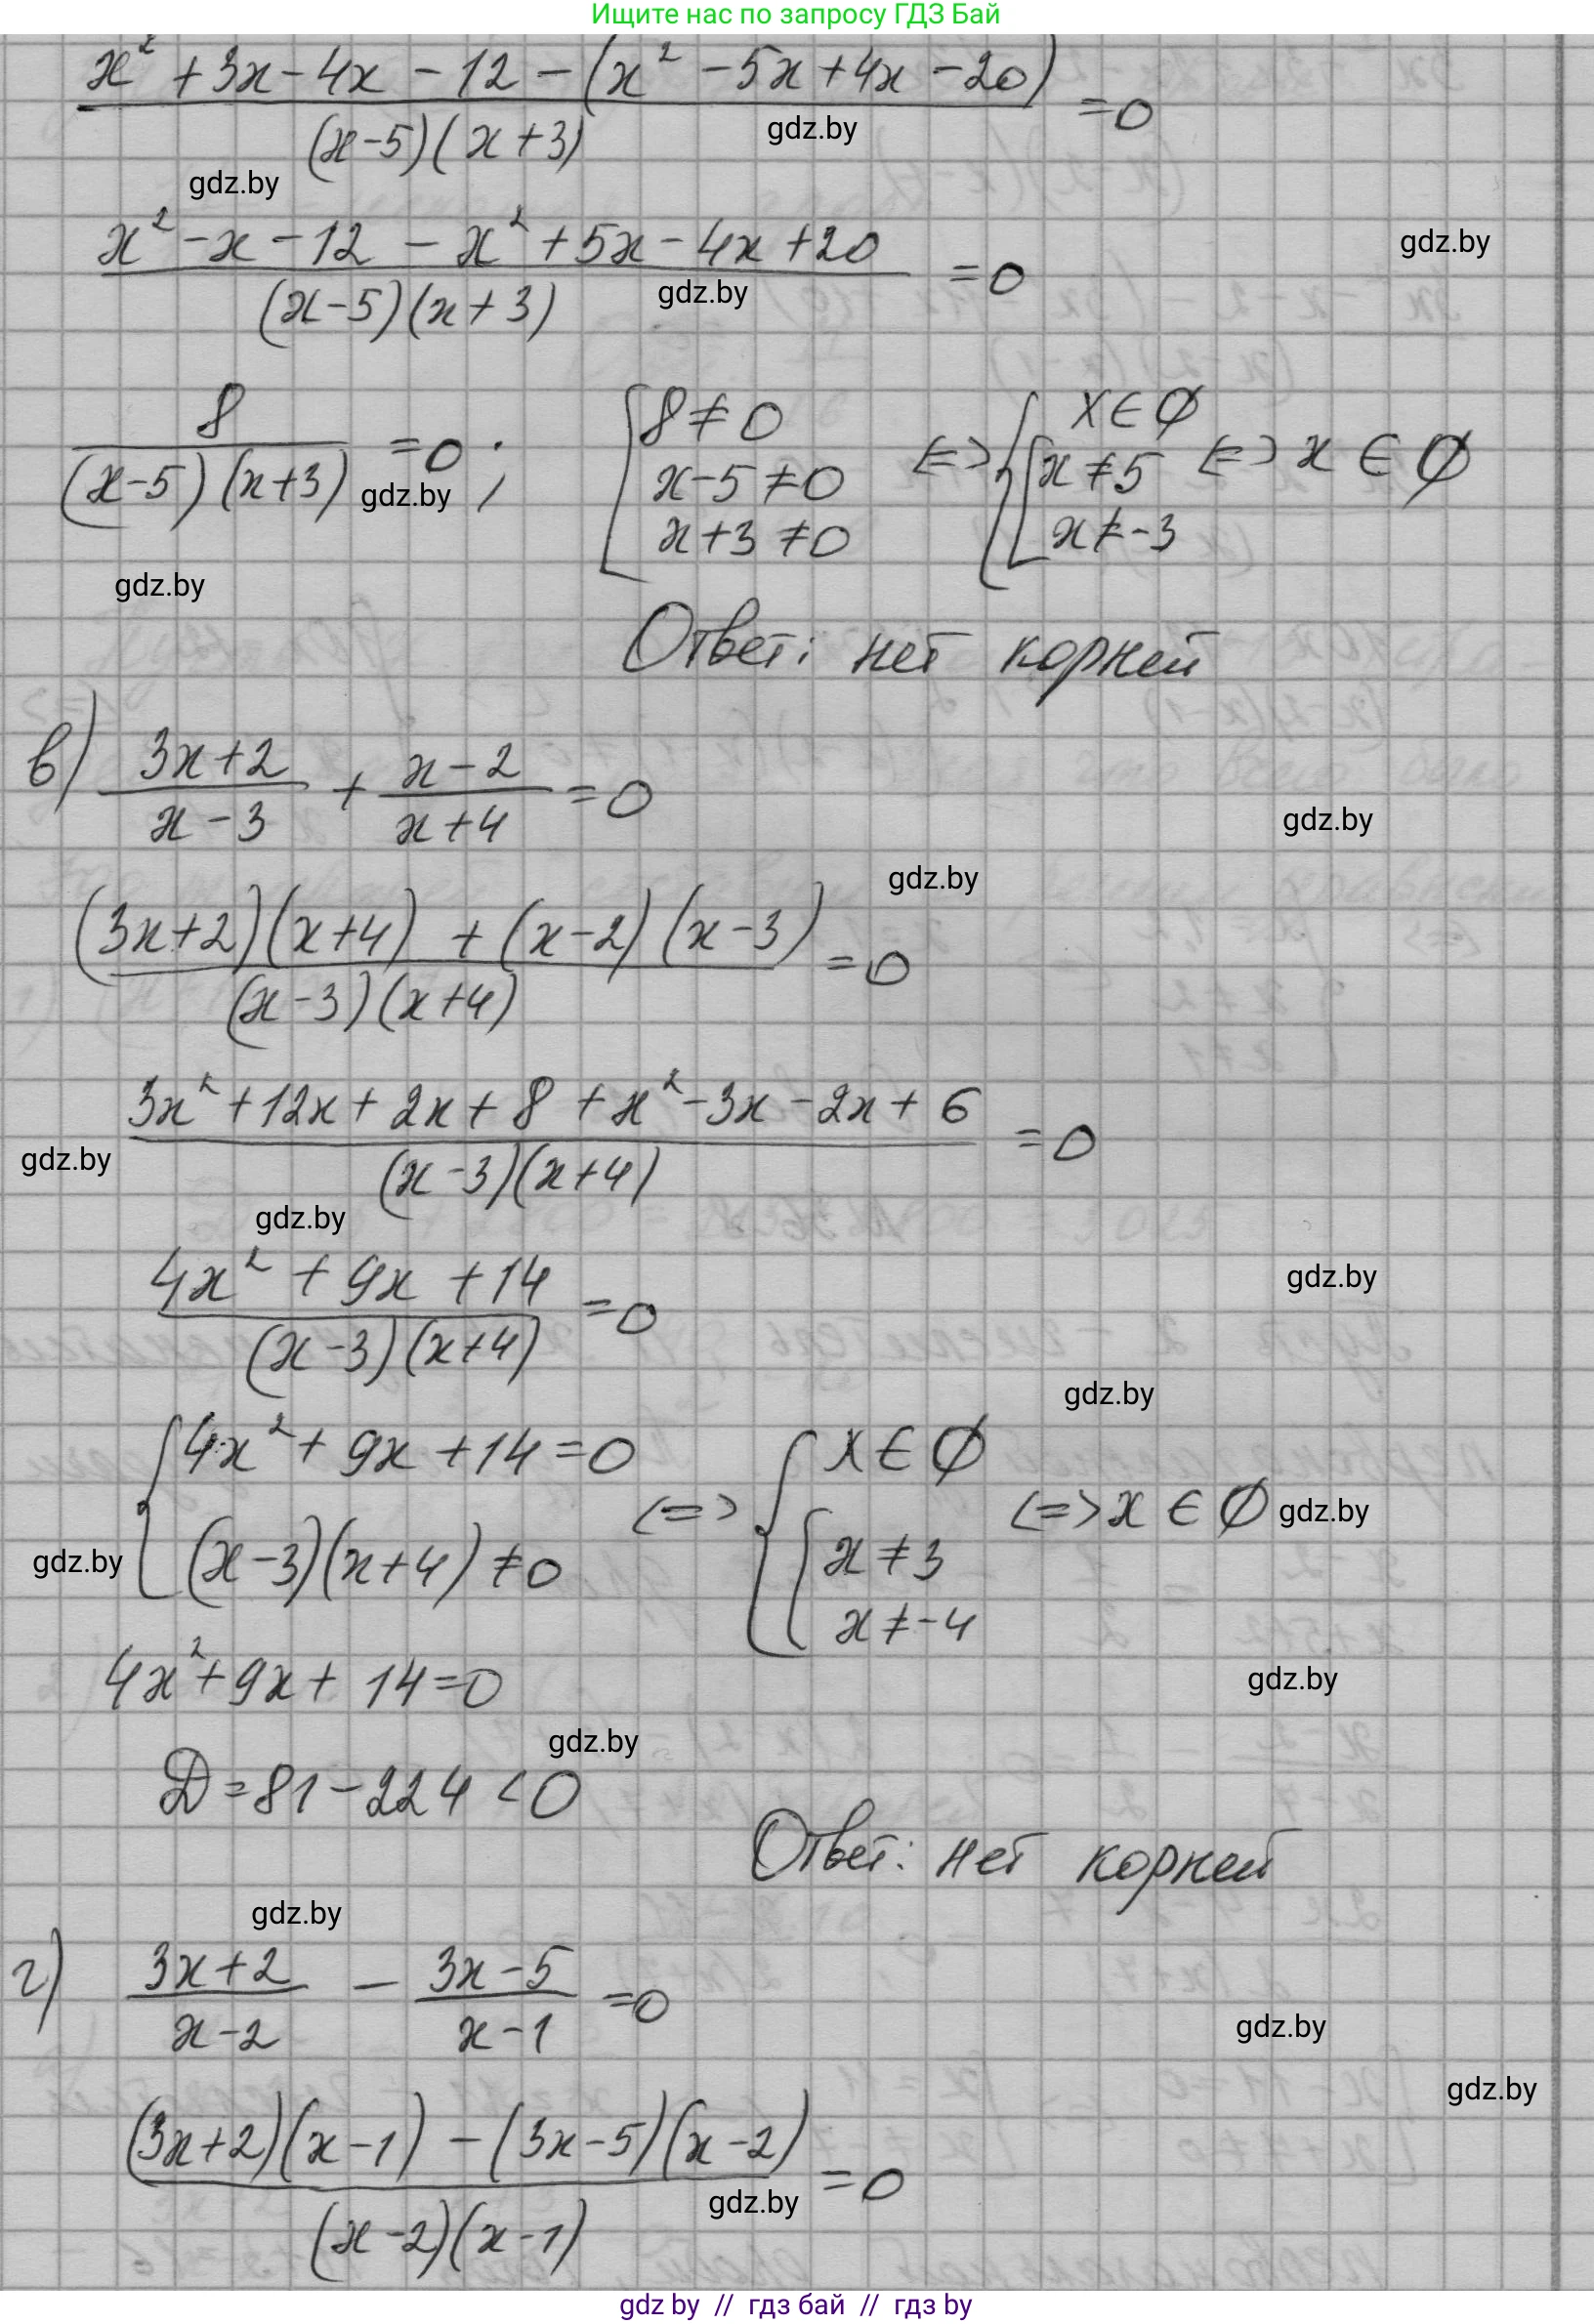 Ищите нас по запросу ГДЗ Бай
x² + 3x - 4x - 12 - (x² - 5x + 4x - 20)
=0
(x-5)(x+3)
gdz.by
gdz.by
x² - x - 12 - x² + 5x - 4x + 20
=0
gdz.by
(x-5)(x+3)
gdz.by
8
=0 ;
(x-5)(x+3)
gdz.by
8≠0
x-5≠0
x+3≠0
<=>
x∈∅
x≠5
x≠-3
<=> x∈∅
gdz.by
Ответ: нет корней
в) 3x+2 + x-2 =0
x-3 x+4
gdz.by
gdz.by
(3x+2)(x+4) + (x-2)(x-3)
=0
(x-3)(x+4)
3x² + 12x + 2x + 8 + x² - 3x - 2x + 6
=0
gdz.by
(x-3)(x+4)
gdz.by
4x² + 9x + 14
=0
gdz.by
(x-3)(x+4)
gdz.by
4x² + 9x + 14 = 0
(x-3)(x+4)≠0
<=>
x∈∅
x≠3
x≠-4
<=> x∈∅
gdz.by
gdz.by
4x² + 9x + 14 = 0
gdz.by
gdz.by
D = 81 - 224 < 0
Ответ: нет корней
gdz.by
г) 3x+2 - 3x-5 =0
x-2 x-1
gdz.by
gdz.by
(3x+2)(x-1) - (3x-5)(x-2)
=0
gdz.by
(x-2)(x-1)
gdz by // гдз бай // гдз by